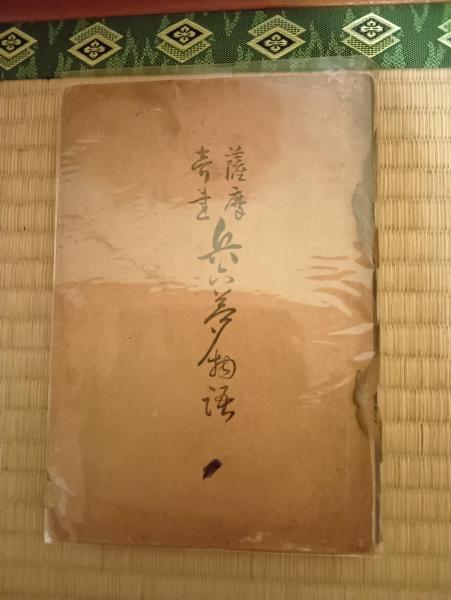 薩摩
奇書
兵六夢物語